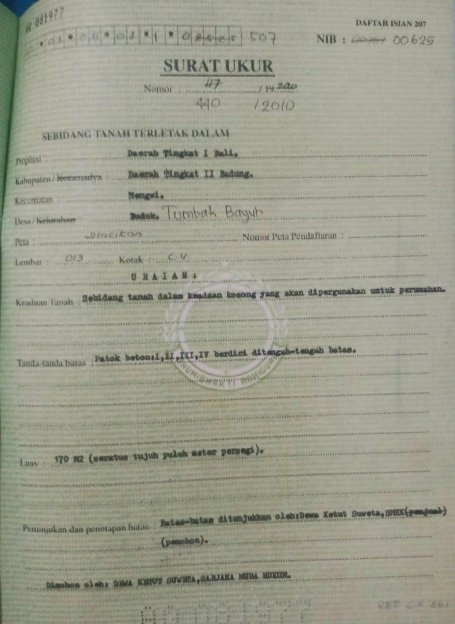 DAFTAR ISIAN 207
NIB : 00625
507
SURAT UKUR
Nomor : 117 / 19 200
440 / 2010
SEBIDANG TANAH TERLETAK DALAM
Propinsi : Daerah Tingkat I Bali.
Kabupaten / Kotamadya : Daerah Tingkat II Badung.
Kecamatan : Mengwi.
Desa / Kelurahan : Buduk, Tumbak Bayuh
Peta Nomor Peta Pendaftaran :
Lembar : 013 Kotak :
U R A I A N :
Keadaan Tanah : Sebidang tanah dalam keadaan kosong yang akan dipergunakan untuk perumahan.
Tanda-tanda batas : Patok beton:I,II,III,IV berdiri ditengah-tengah batas.
Luas : 170 M2 (seratus tujuh puluh meter persegi).
Penunjukan dan penetapan batas : Batas-batas ditunjukkan oleh:Dewa Ketut Suweta,SMHK(penjual)
(pemohon).
Dimohon oleh: DEWA KETUT SUWETA,SARJANA MUDA HUKUM.